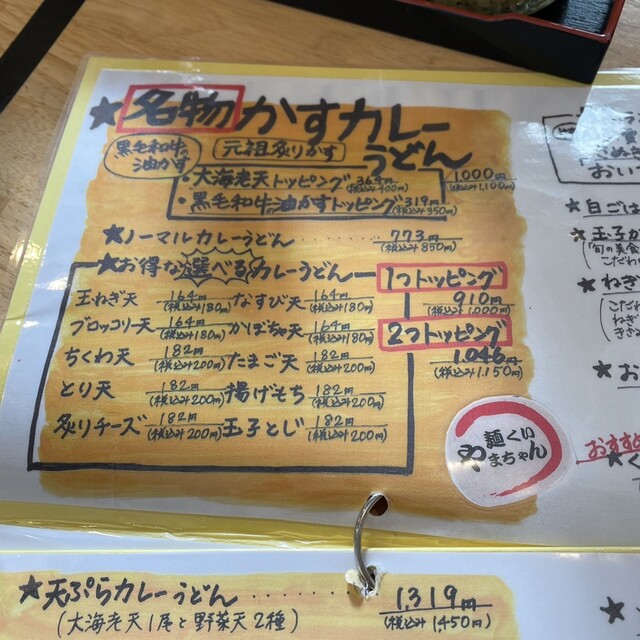 ★名物かすカレーうどん
黒毛和牛油かす
元祖炙りかす
1,000円
(税込み1,100円)
・大海老天トッピング 364円(税込み400円)
・黒毛和牛の油かすトッピング 319円(税込み350円)
★ノーマルカレーうどん 773円
(税込み850円)
★お得な選べるカレーうどん
1つトッピング
910円
(税込み1,000円)
2つトッピング
1,046円
(税込み1,150円)
玉ねぎ天 164円(税込み180円) なすび天 164円(税込み180円)
ブロッコリー天 164円(税込み180円) かぼちゃ天 164円(税込み180円)
ちくわ天 182円(税込み200円) たまご天 182円(税込み200円)
とり天 182円(税込み200円) 揚げもち 182円(税込み200円)
炙りチーズ 182円(税込み200円) 玉子とじ 182円(税込み200円)
麺くい
やまちゃん
★天ぷらカレーうどん 1,319円
(大海老天1尾と野菜天2種) (税込み1,450円)
おい
★白ごは
★玉子が
「旬の美食
こだわ
★ねぎ
こだわ
ねぎ
★お
おすすめ
★く